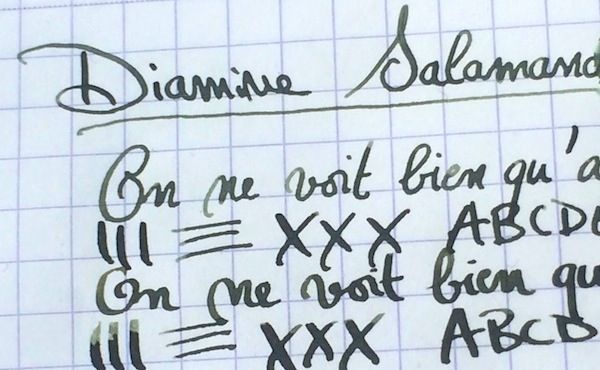 Diamine Salamand
On ne voit bien qu'a
III XXX ABCDE
On ne voit bien qu
III XXX ABCD